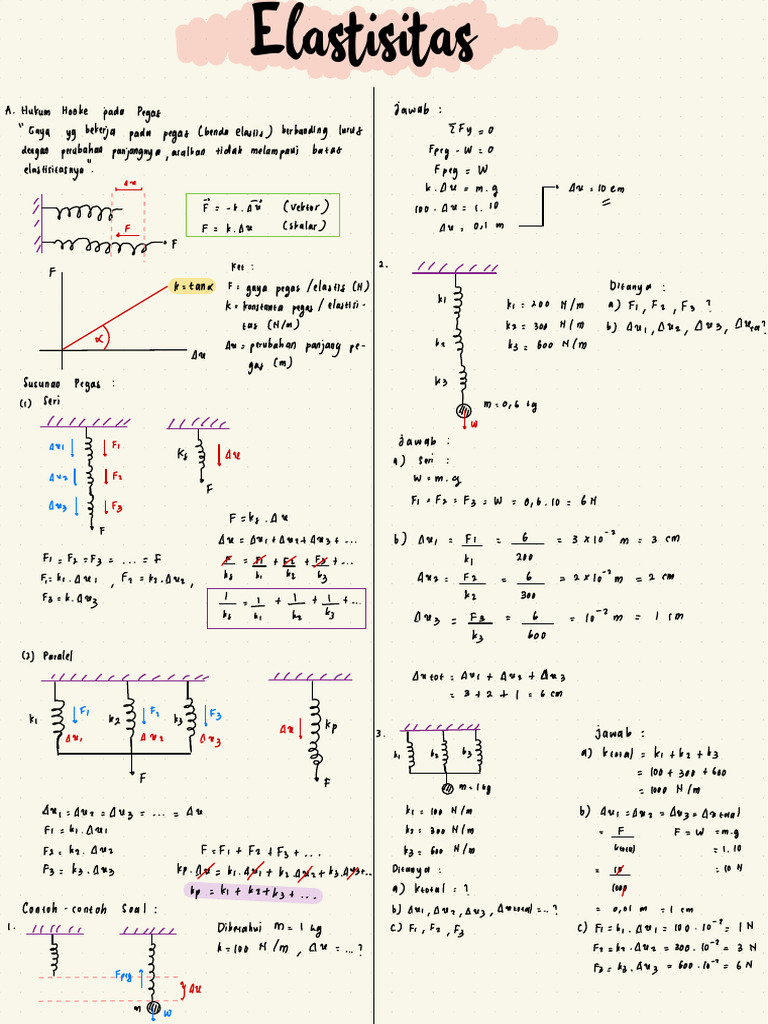 Elastisitas
A. Hukum Hooke pada Pegas
"Gaya yg bekerja pada pegas (benda elastis) berbanding lurus
dengan perubahan panjangnya, asalkan tidak melampaui batas
elastisitasnya".
Δx
F
F
F⃗ = -k.Δx⃗ (vektor)
F = k.Δx (skalar)
F
k = tan α
α
Δx
Ket :
F = gaya pegas / elastis (N)
k = konstanta pegas / elastisi-
tas (N/m)
Δx = perubahan panjang pe-
gas (m)
Susunan Pegas :
(1) Seri
Δx1 F1
Δx2 F2
Δx3 F3
F
ks Δx
F
F = ks . Δx
Δx = Δx1 + Δx2 + Δx3 + ...
F/ks = F1/k1 + F2/k2 + F3/k3 + ...
1/ks = 1/k1 + 1/k2 + 1/k3 + ...
F1 = F2 = F3 = ... = F
F1 = k1 . Δx1 , F2 = k2 . Δx2 ,
F3 = k . Δx3
(2) Paralel
k1 F1 k2 F2 k3 F3
Δx1 Δx2 Δx3
F
Δx kp
F
Δx1 = Δx2 = Δx3 = ... = Δx
F1 = k1 . Δx1
F2 = k2 . Δx2
F3 = k3 . Δx3
F = F1 + F2 + F3 + ...
kp . Δx = k1 . Δx1 + k2 Δx2 + k3 . Δx3 + ...
kp = k1 + k2 + k3 + ...
Contoh-contoh Soal :
1.
Fpeg
Δx
m
W
Diketahui m = 1 kg
k = 100 N/m , Δx = ... ?
jawab :
ΣFy = 0
Fpeg - W = 0
Fpeg = W
k . Δx = m . g
100 . Δx = 1 . 10
Δx = 0,1 m
Δx = 10 cm
2.
k1
k2
k3
m = 0,6 kg
W
k1 = 200 N/m
k2 = 300 N/m
k3 = 600 N/m
Ditanya :
a) F1, F2, F3 ?
b) Δx1, Δx2, Δx3, Δxtot ?
jawab :
a) Seri :
W = m . g
F1 = F2 = F3 = W = 0,6 . 10 = 6 N
b) Δx1 = F1/k1 = 6/200 = 3 x 10⁻² m = 3 cm
Δx2 = F2/k2 = 6/300 = 2 x 10⁻² m = 2 cm
Δx3 = F3/k3 = 6/600 = 10⁻² m = 1 cm
Δx tot = Δx1 + Δx2 + Δx3
= 3 + 2 + 1 = 6 cm
3.
k1 k2 k3
m = 1 kg
k1 = 100 N/m
k2 = 300 N/m
k3 = 600 N/m
Ditanya :
a) ktotal = ?
b) Δx1, Δx2, Δx3, Δxtotal = ... ?
c) F1, F2, F3
jawab :
a) ktotal = k1 + k2 + k3
= 100 + 300 + 600
= 1000 N/m
b) Δx1 = Δx2 = Δx3 = Δxtotal
= F/ktotal F = W = m.g
= 1.10
= 10/1000 = 10 N
= 0,01 m = 1 cm
c) F1 = k1 . Δx1 = 100 . 10⁻² = 1 N
F2 = k2 . Δx2 = 300 . 10⁻² = 3 N
F3 = k3 . Δx3 = 600 . 10⁻² = 6 N